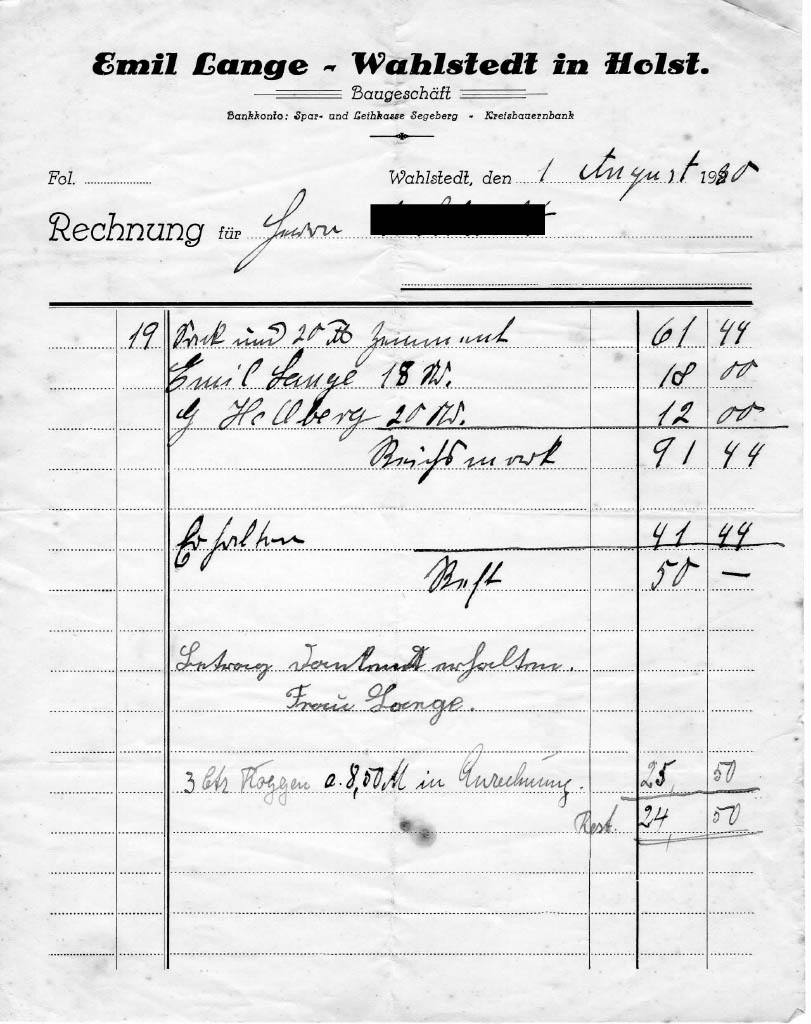 Emil Lange - Wahlstedt in Holst.
Baugeschäft
Bankkonto: Spar- und Leihkasse Segeberg - Kreisbauernbank
Fol.
Wahlstedt, den 1 August 1930
Rechnung für Herrn
19 Sack und 20 ℔ Zemment 61 44
Emil Lange 18 St. 18 00
G Hellberg 20 St. 12 00
Reichsmark 91 44
Erhalten 41 44
Rest 50 —
Betrag dankend erhalten.
Frau Lange.
3 Ctr Roggen a. 8,50 M in Anrechnung. 25, 50
Rest. 24, 50